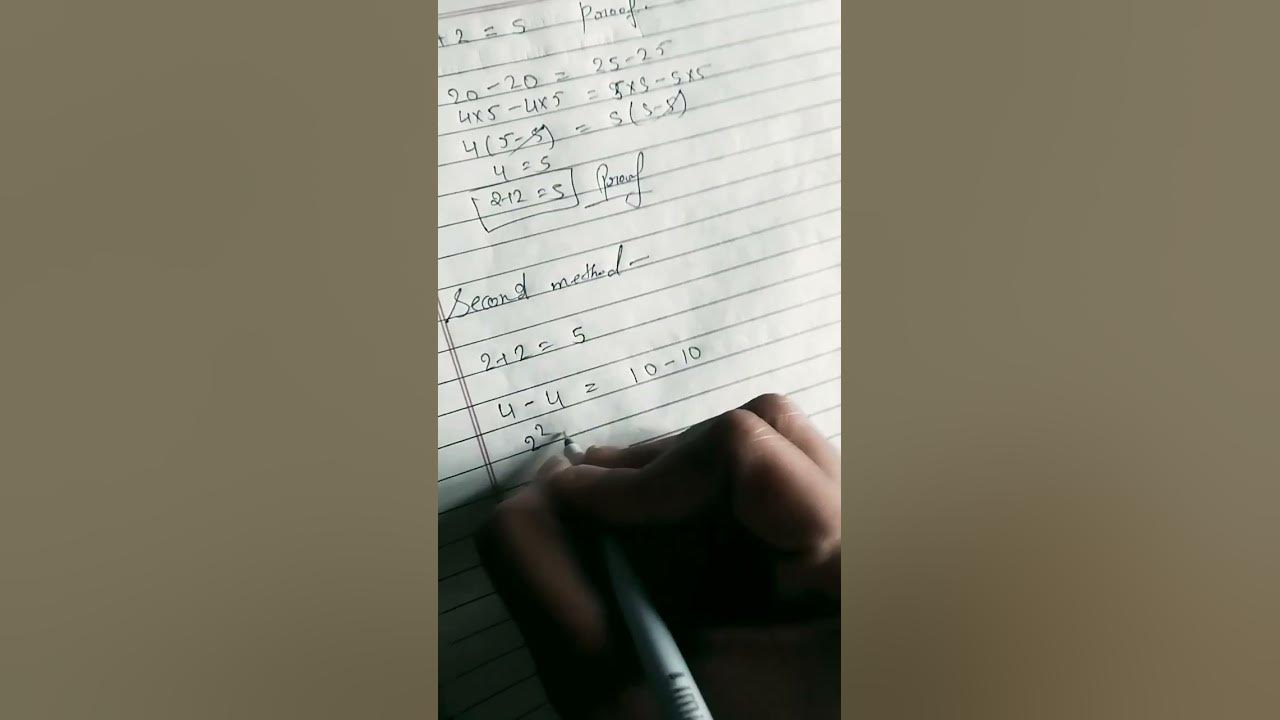 + 2 = 5 Proof..
20 - 20 = 25 - 25
4×5 - 4×5 = 5×5 - 5×5
4(5-5) = 5(5-5)
4 = 5
2+2 = 5 Proof
Second method -
2+2 = 5
4 - 4 = 10 - 10
2²